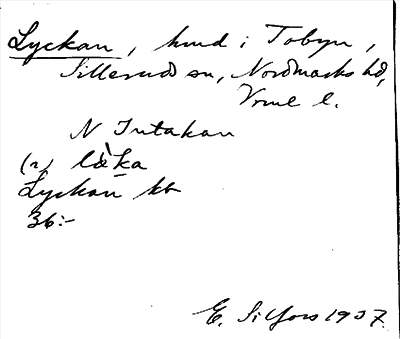 Lyckan, hmd i Tobyn,
Sillerud sn, Nordmarks hd,
Vrml l.
N Intakan
(n) læ̀ka
Lyckan kt
36:-
E. Silfors 1937.